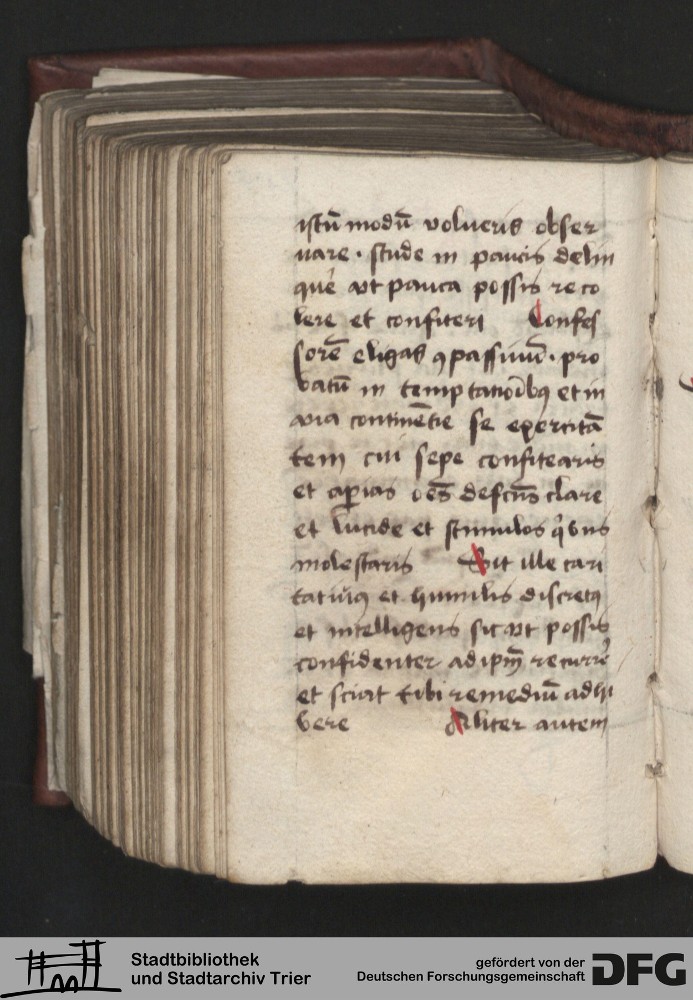 istū modū volueris obser
uare · stude in paucis delin
quē vt pauca possis reco
lere et confiteri Confes
sorē eligas ꝯpassiuū · pro
batū in temptatōibꝫ et in
via continētie se exercitā
tem cui sepe confitearis
et aꝑias oēs defcūs clare
et lucide et stimulos qͥbus
molestaris Sit ille cari
tatiuꝰ et humilis discretꝰ
et intelligens sic vt possis
confidenter ad ipm̄ recurrē
et sciat tibi remediū adhi
bere Aliter autem
Stadtbibliothek
und Stadtarchiv Trier
gefördert von der
Deutschen Forschungsgemeinschaft
DFG